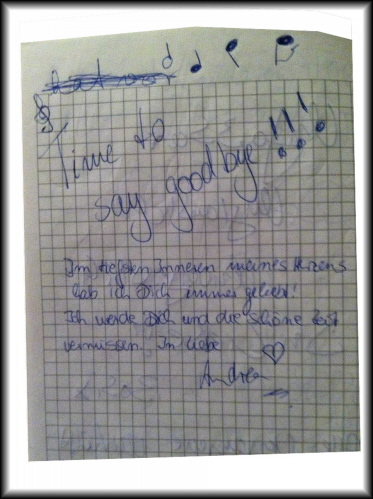 Time to
say goodbye!!!
Im tiefsten Inneren meines Herzens
hab ich Dich immer geliebt!
Ich werde Dich und die schöne Zeit
vermissen. In Liebe
Andrea